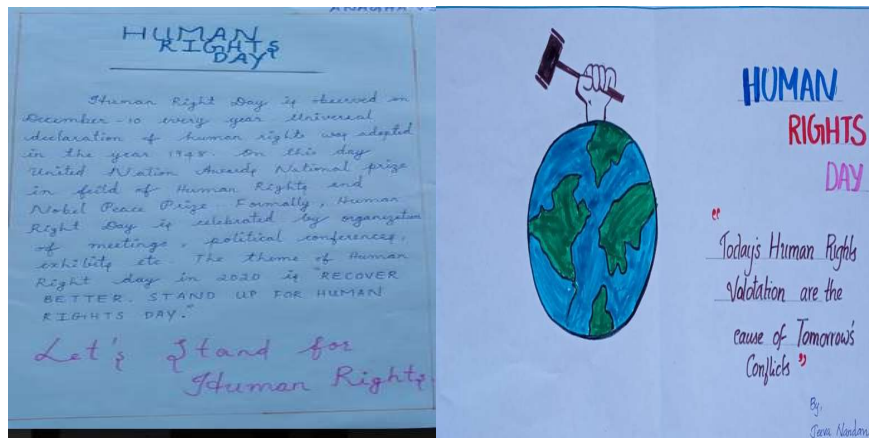 HUMAN
RIGHTS
DAY
Human Right Day is observed on
December-10 every year Universal
declaration of human rights was adopted
in the year 1948. On this day
United Nation Awards National prize
in feild of Human Rights and
Nobel Peace Prize. Formally, Human
Right Day is celebrated by organization
of meetings, political conferences,
exhibits etc. The theme of Human
Right day in 2020 is "RECOVER
BETTER. STAND UP FOR HUMAN
RIGHTS DAY."
Let's Stand for
Human Rights
HUMAN
RIGHTS
DAY
"
Today's Human Rights
Valotation are the
cause of Tomorrow's
Conflicts"
By,
Jeeva Nandan